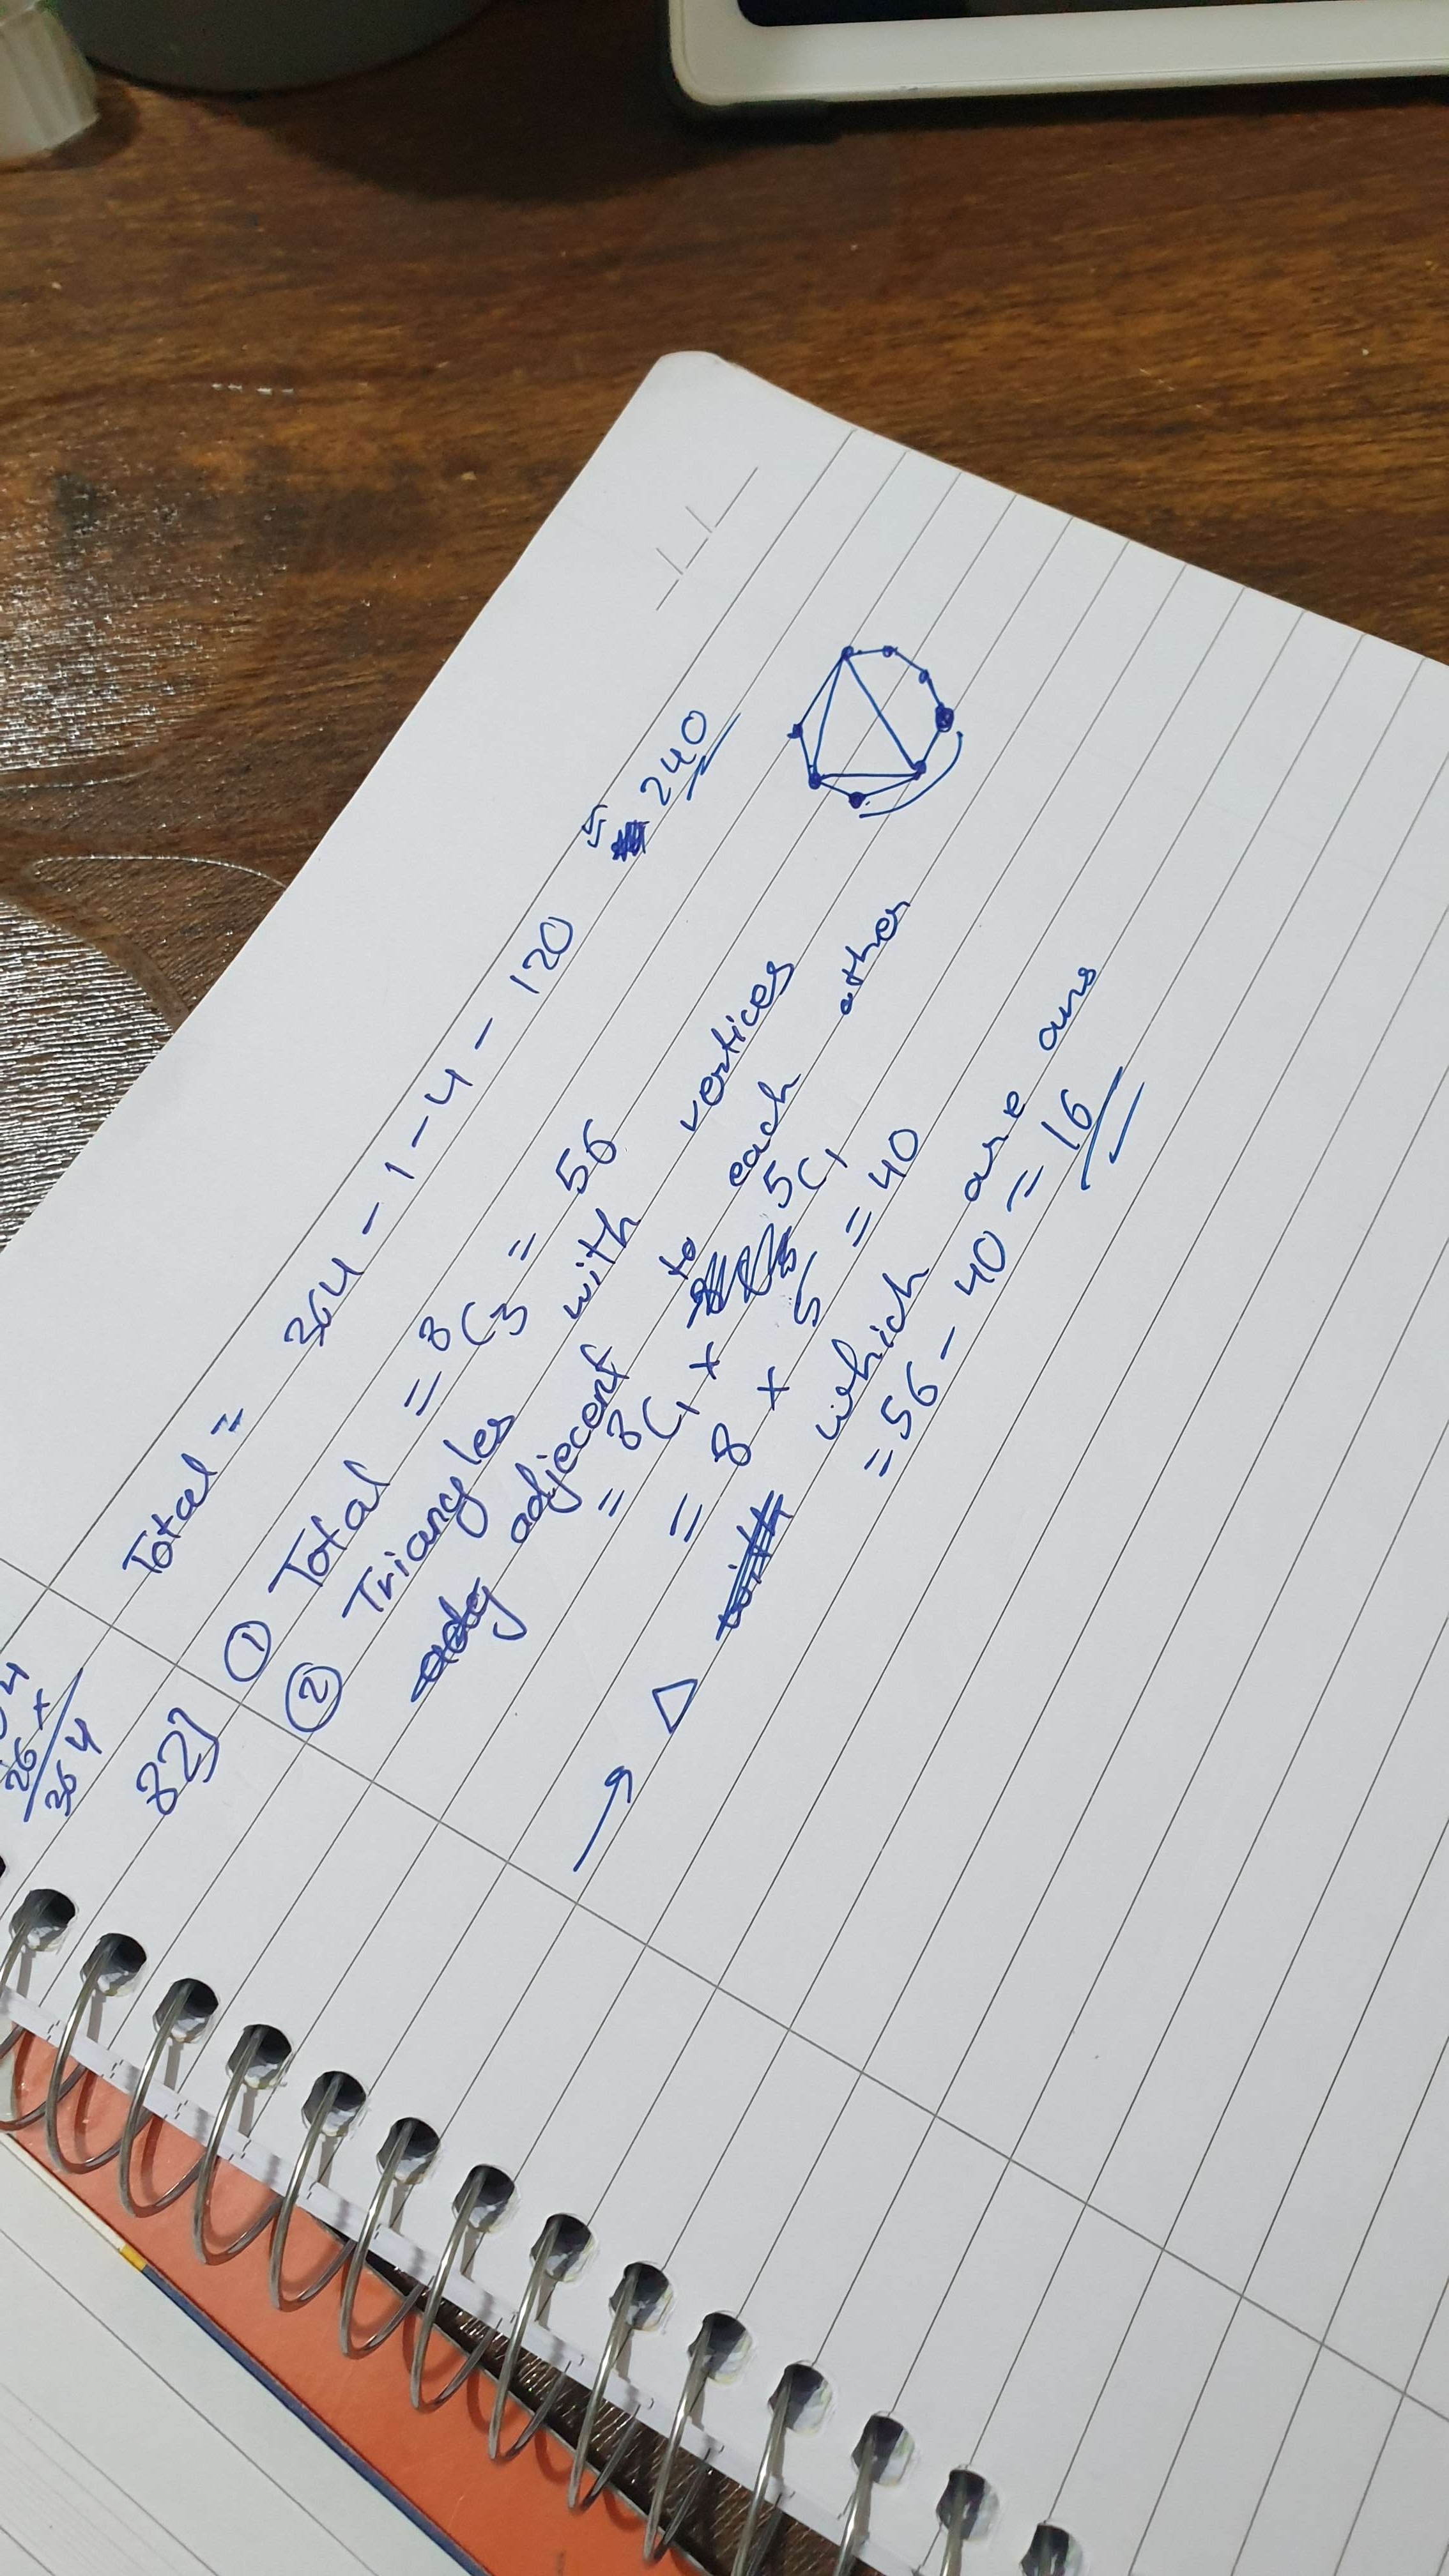 26 x
364
Total = 364 - 1 - 4 - 120 = 240
32) ① Total = 8C3 = 56
② Triangles with vertices
adjecent to each other
= 8C1 x 5C1
= 8 x 5 = 40
→ △ which are ours
= 56 - 40 = 16